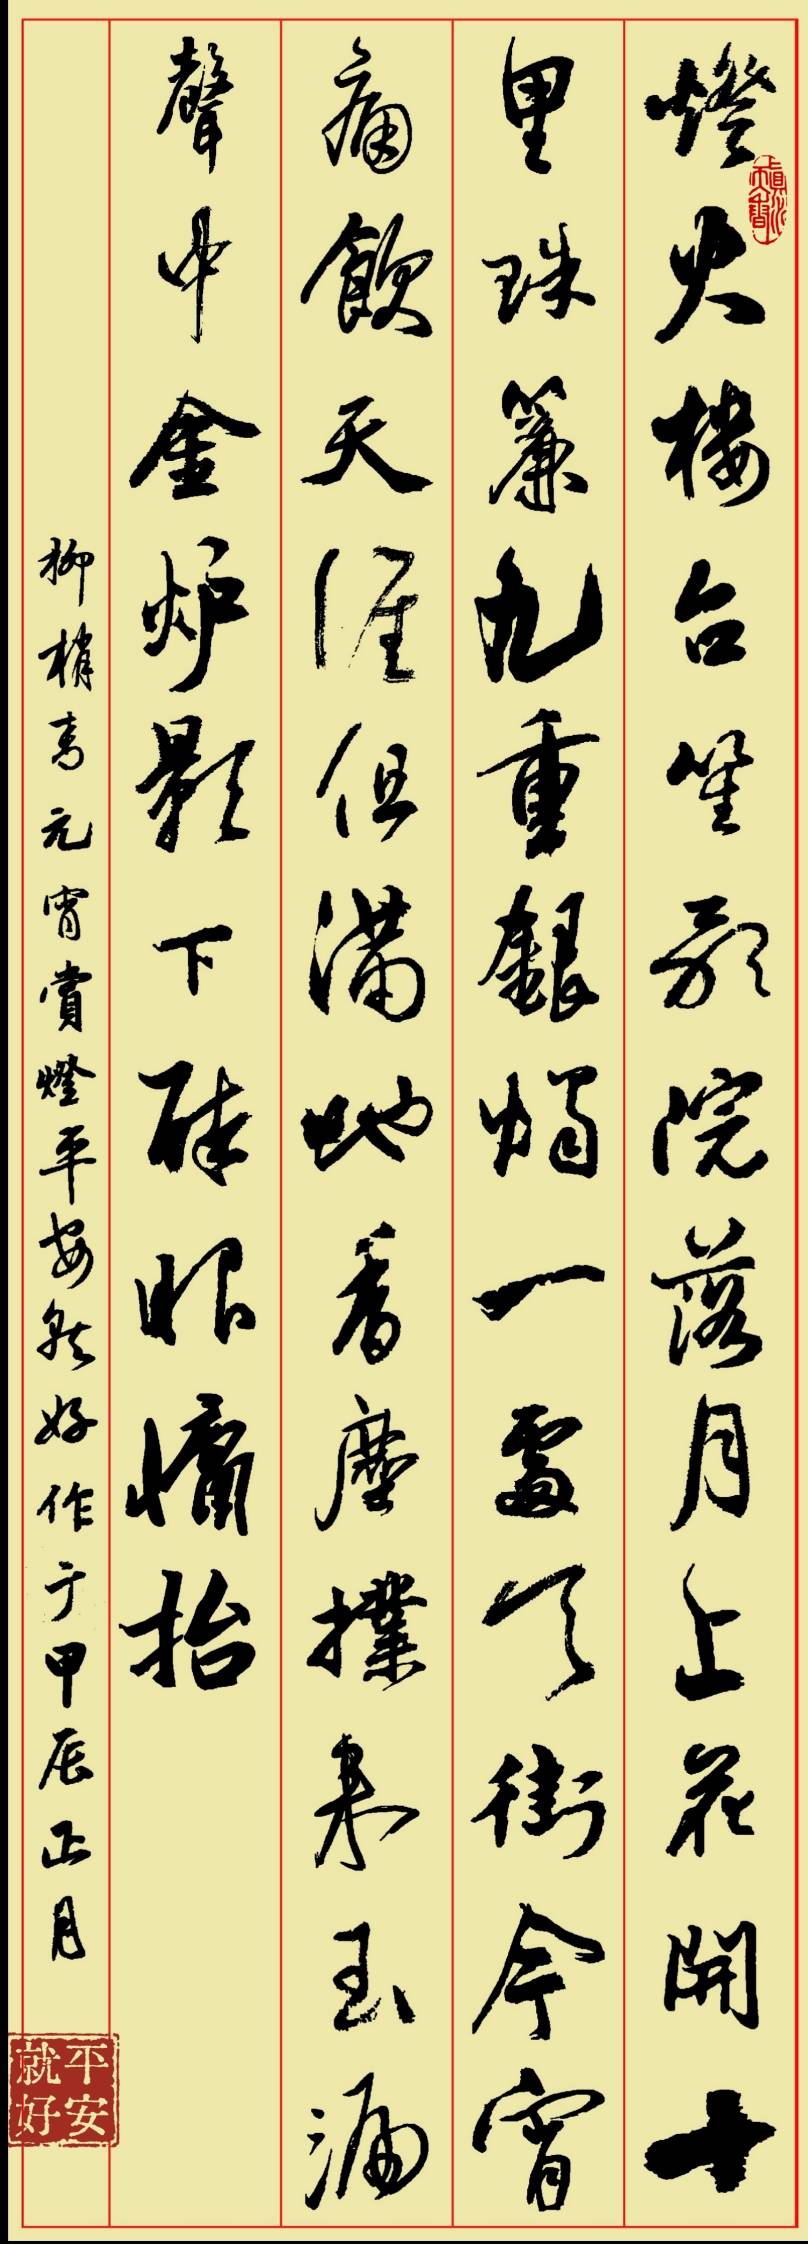 燈火楼台笙歌院落月上花開十
里珠簾九重銀燭一處天街今宵
痛飲天涯但滿地香塵撲来玉漏
聲中金炉影下醉眼慵抬
柳梢青元宵賞燈平安就好作于甲辰正月
平安
就好